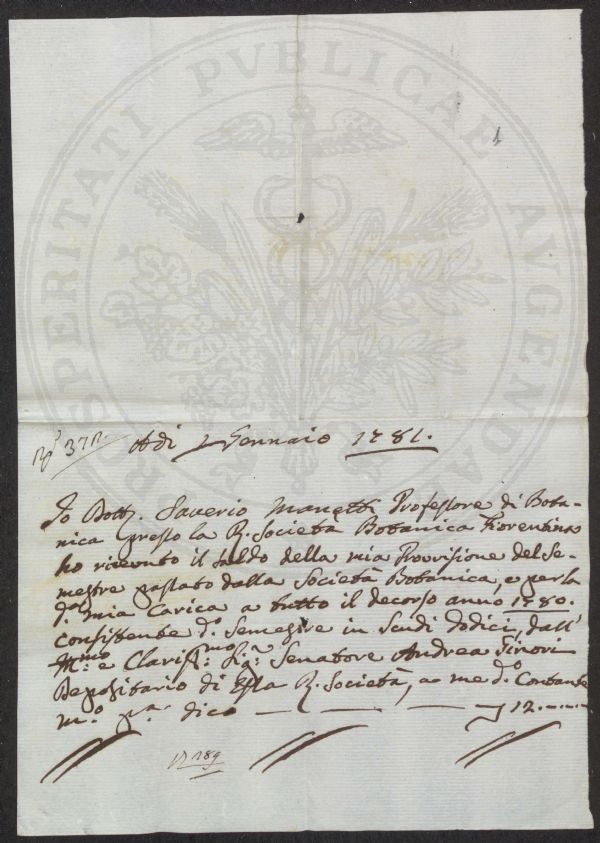 1
PROSPERITATI PVBLICAE AVGENDAE
37 2.
Adi 2 Gennaio 1781.
Io Dott. Saverio Manetti Professore di Bota-
nica presso la R. Società Botanica Fiorentina
ho ricevuto il saldo della mia Provvisione del Se-
mestre passato dalla Società Botanica, e per la
d.a mia Carica a tutto il decorso anno 1780.
consistente d.o Semestre in Scudi dodici, dall'
Ill.mo e Clariss.mo Sig.r Senatore Andrea Ginori
Depositario di essa R. Società, a me d.o Contante
m.o p.a dico — — — — — 12.-.-.-
189